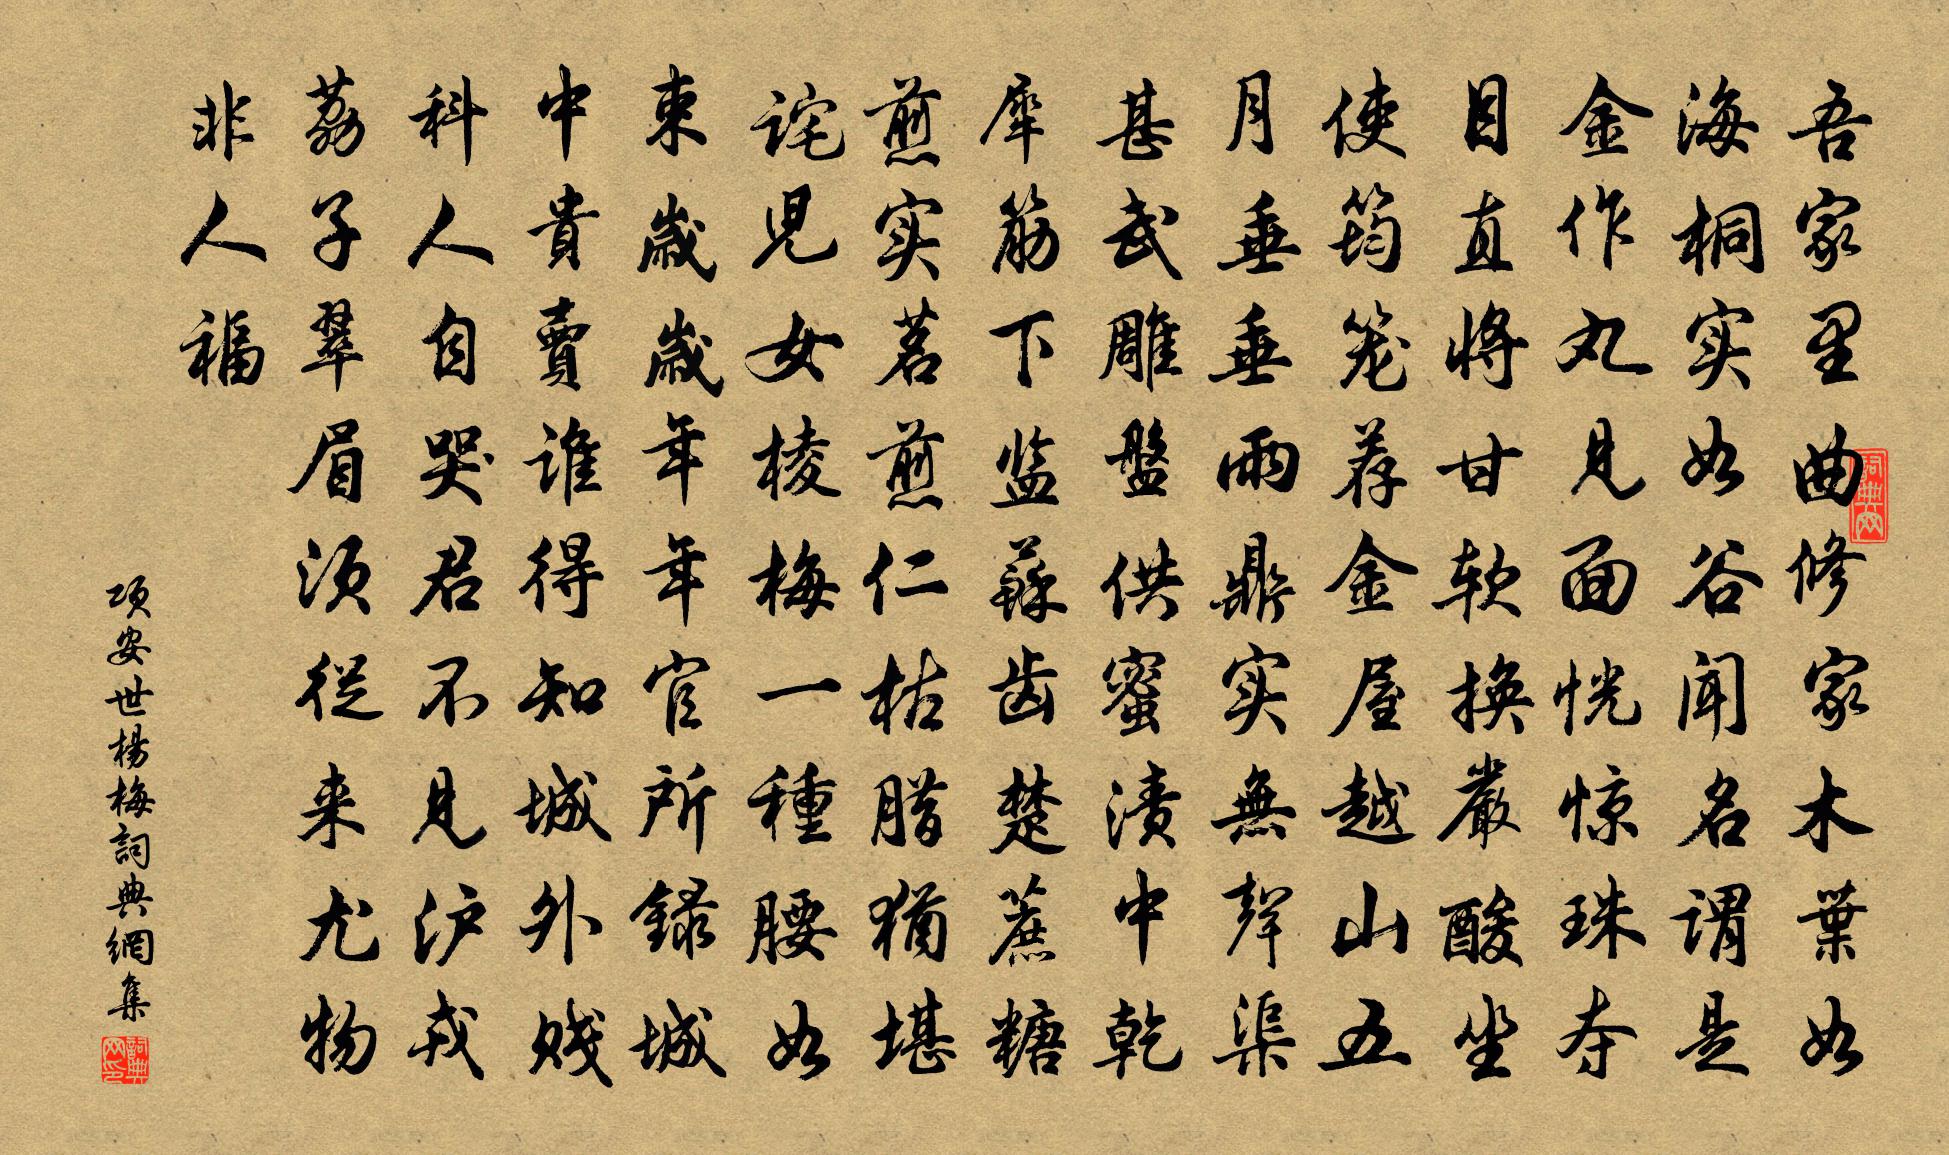 吾家里曲修家木葉如
海桐实如谷闻名谓是
金作丸见面恍惊珠夺
目直将甘软换嚴酸坐
使筠笼荐金屋越山五
月垂垂雨鼎实無聲渠
甚武雕盤供蜜渍中乾
犀筋下监蘇齿楚蔗糖
煎实茗煎仁枯腊猶堪
诧児女棱梅一種腰如
束歲歲年年官所録城
中貴賣谁得知城外贱
科人自哭君不见沪戎
荔子翠眉须從来尤物
非人福
项安世楊梅詞典網集
詞典网
詞典网印